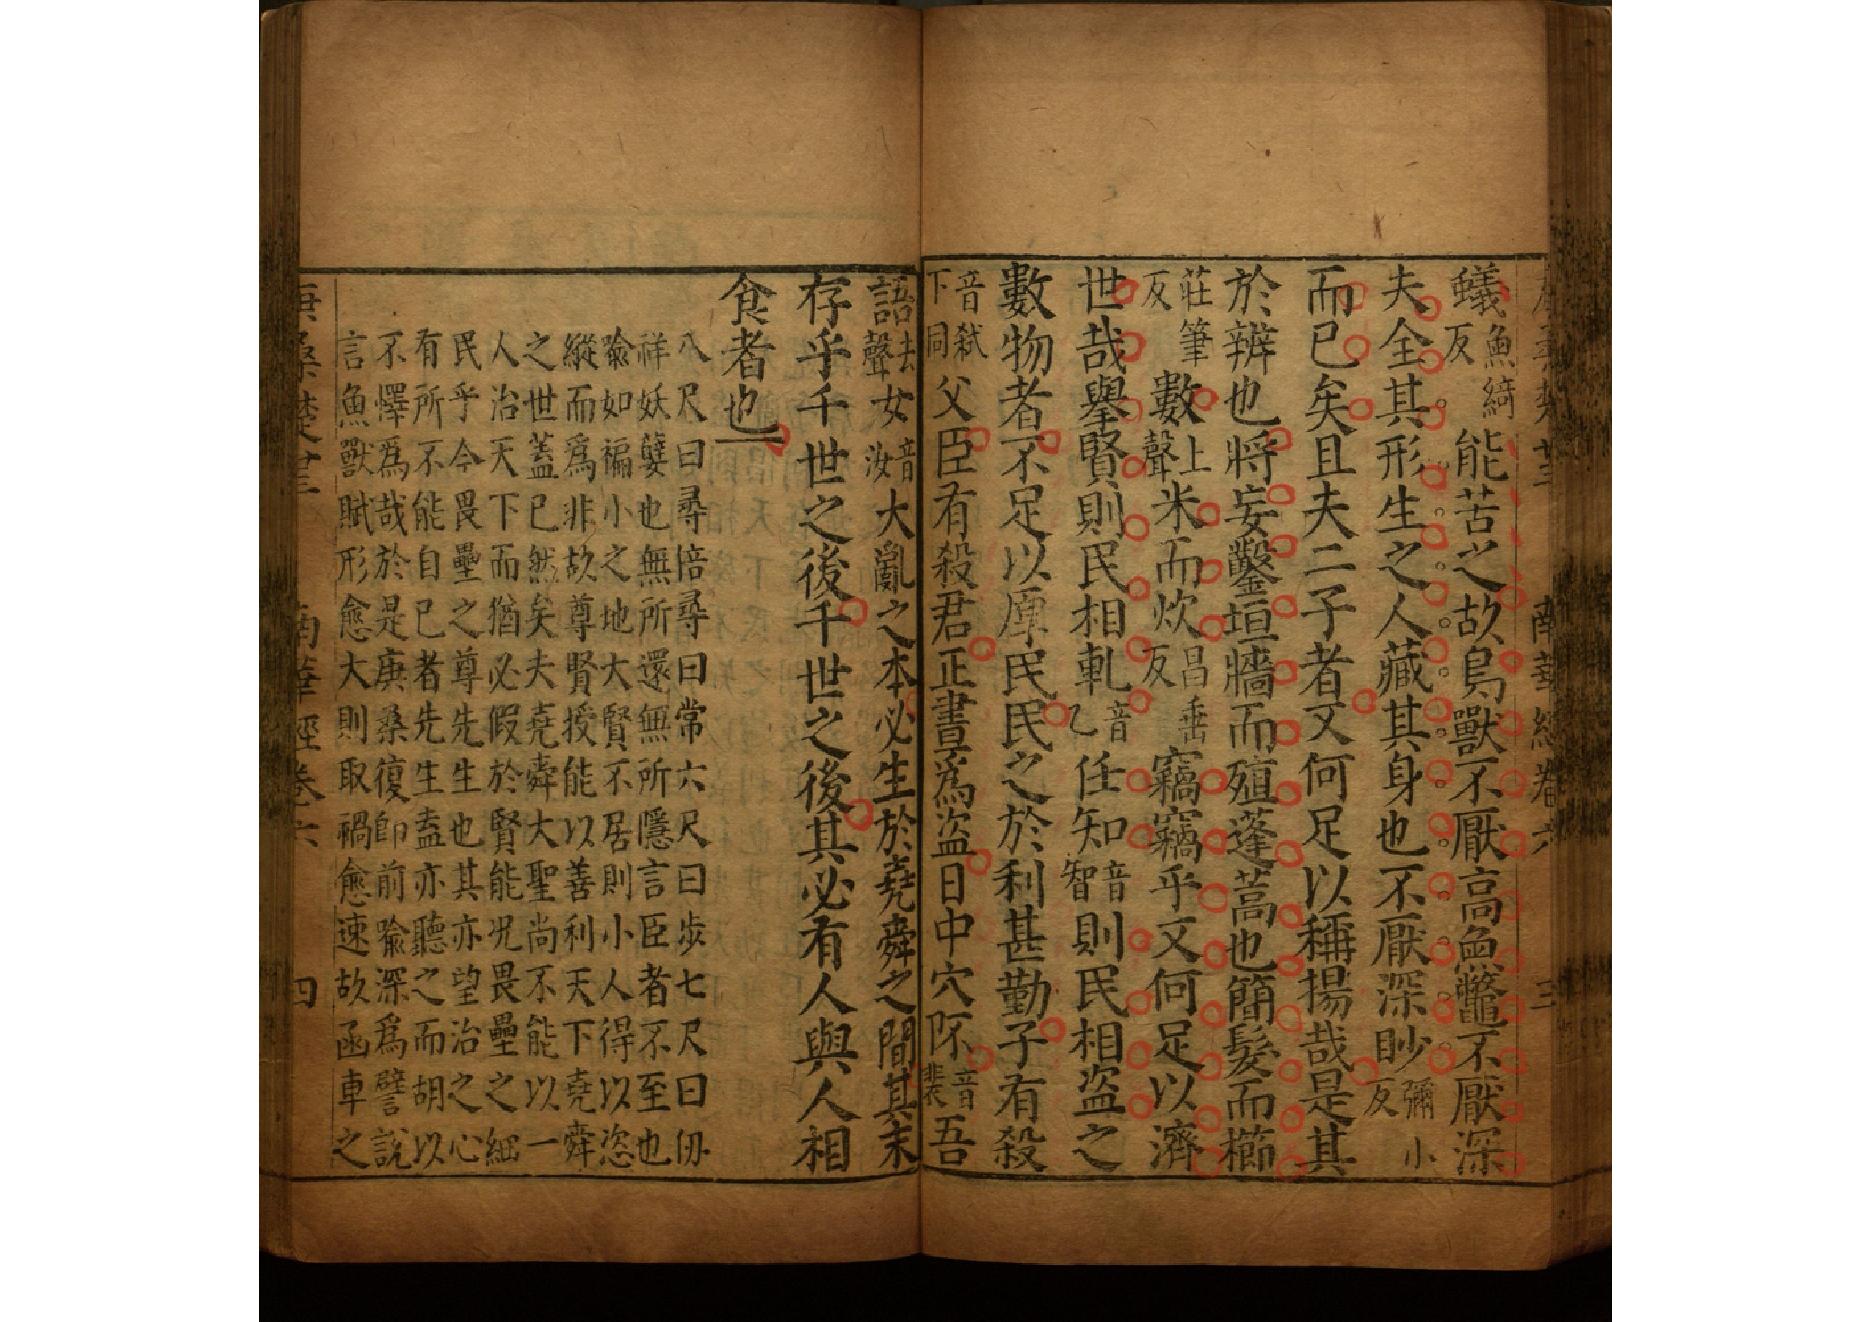 蟻魚綺反能苦之故鳥獸不厭高魚鼈不厭深
夫全其形生之人藏其身也不厭深眇彌小反
而已矣且夫二子者又何足以稱揚哉是其
於辨也將妄鑿垣牆而殖蓬蒿也簡髮而櫛
莊筆反數上聲米而炊昌垂反竊竊乎又何足以濟
世哉舉賢則民相軋音乙任知音智則民相盜之
數物者不足以厚民民之於利甚勤子有殺
音弒下同父臣有殺君正晝為盜日中穴阫音裴吾
語去聲女音汝大亂之本必生於堯舜之間其末
存乎千世之後千世之後其必有人與人相
食者也
八尺曰尋倍尋曰常六尺曰步七尺曰仞
祥妖孽也無所還無所隱言臣者不至也
喩如褊小之地大賢不居則小人得以恣
縱而為非故尊賢授能以善利天下堯舜
之世蓋已然矣夫堯舜大聖尚不能以一
人治天下而猶必假於賢能况畏壘之細
民乎今畏壘之尊先生也其亦望治之心
有所不能自已者先生盍亦聽之而胡以
不懌為哉於是庚桑復即前喩深為譬説
言魚獸賦形愈大則取禍愈速故函車之
庚桑楚廿三 南華經卷六 四